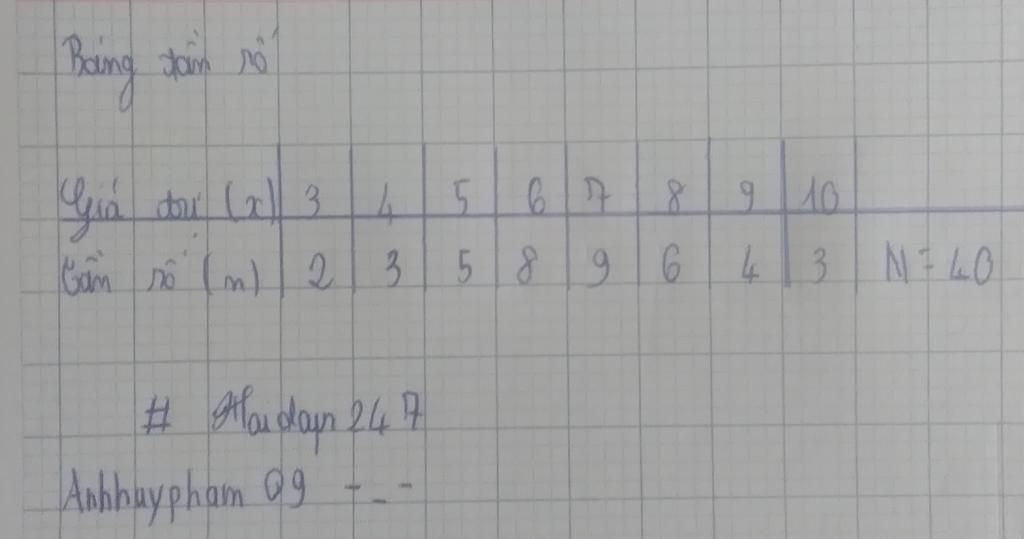 Bảng tần số
Giá trị (x) 3 4 5 6 7 8 9 10
Tần số (n) 2 3 5 8 9 6 4 3 N = 40
# Hoidap247
Anhhuypham09 -_-